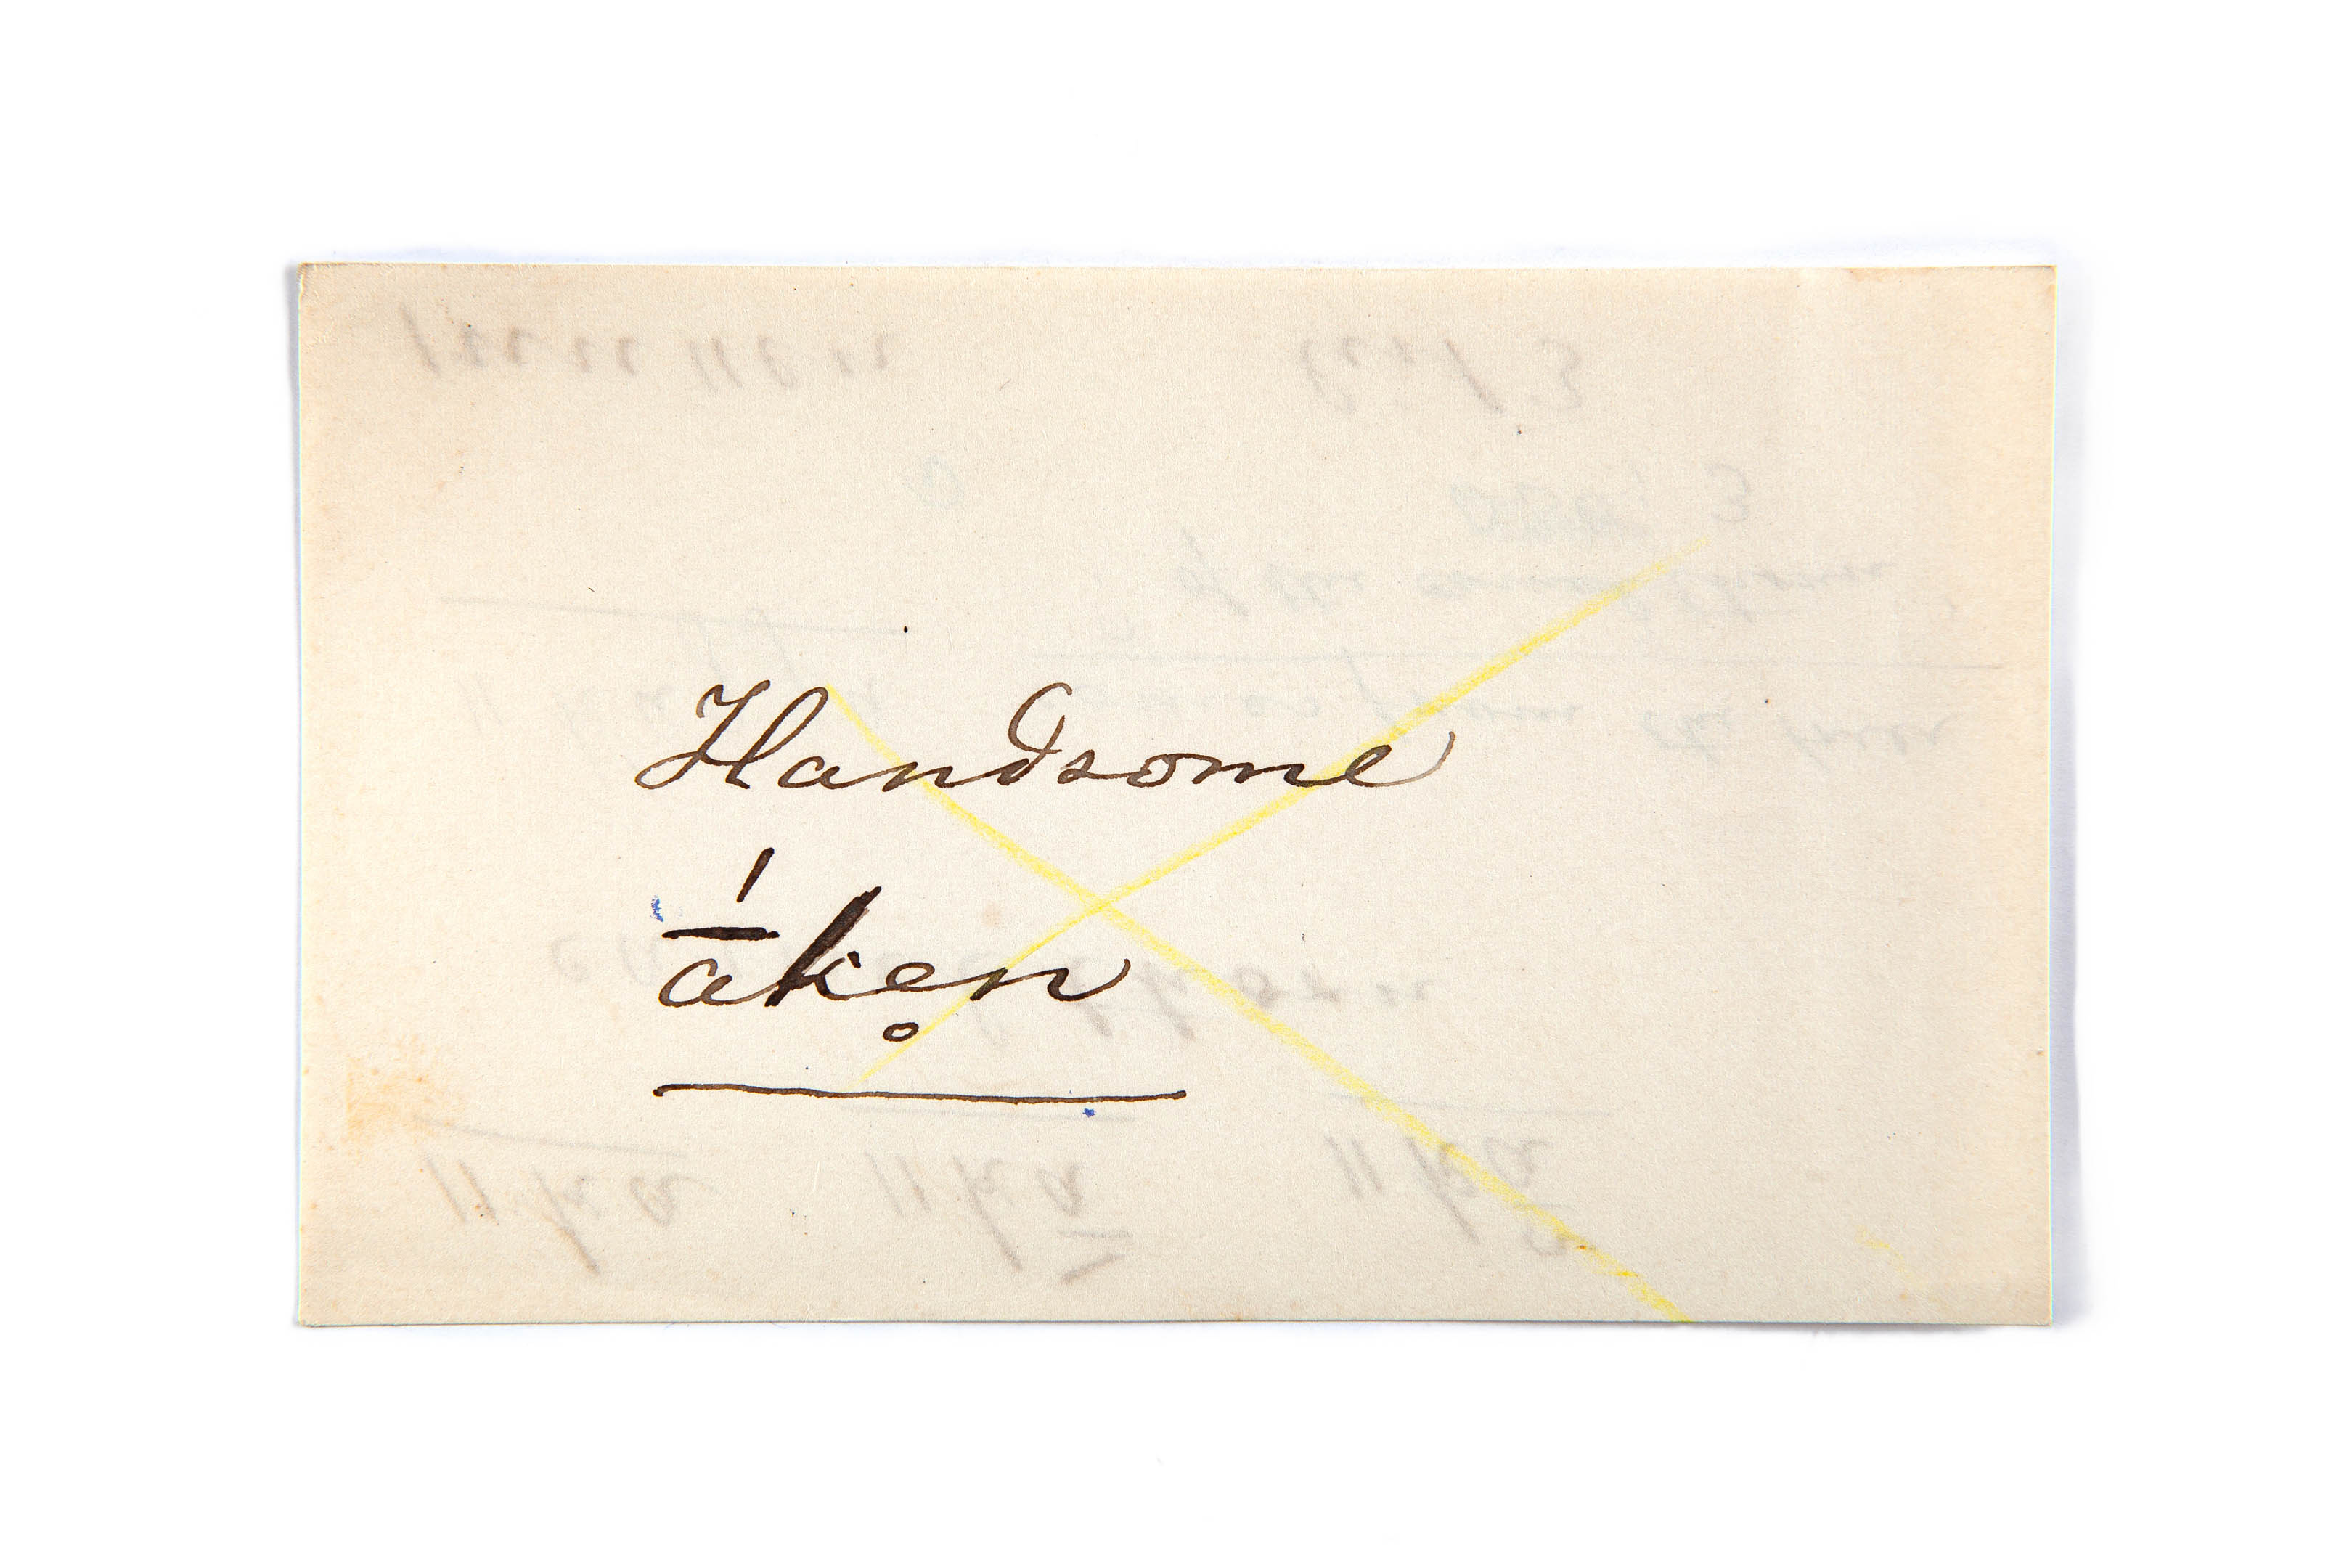 Handsome
ā́ke̥n